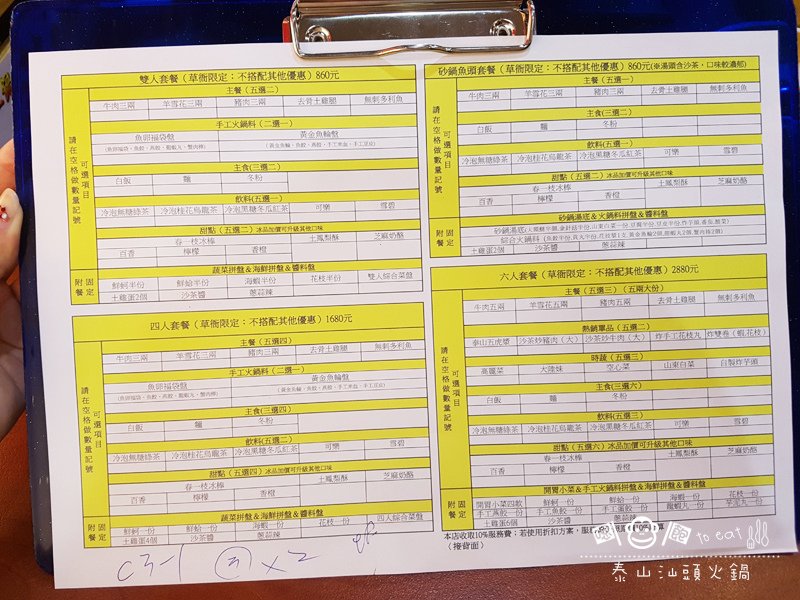 雙人套餐（草衙限定：不搭配其他優惠）860元
主餐（五選二）
牛肉三兩 羊雪花三兩 豬肉三兩 去骨土雞腿 無刺多利魚
手工火鍋料（二選一）
魚卵福袋盤 黃金魚輪盤
主食(三選二)
白飯 麵 冬粉
飲料(五選一)
冷泡無糖綠茶 冷泡桂花烏龍茶 冷泡黑糖冬瓜紅茶 可樂 雪碧
甜點（五選二）冰品加價可升級其他口味
春一枝冰棒 土鳳梨酥 芝麻奶酪
百香 檸檬 香橙
蔬菜拼盤＆海鮮拼盤＆醬料盤
鮮蚵半份 鮮蛤半份 海蝦半份 花枝半份 雙人綜合菜盤
土雞蛋2個 沙茶醬 蔥蒜辣
請在空格做數量記號
可選項目
附餐
固定
四人套餐（草衙限定：不搭配其他優惠）1680元
主餐（五選四）
牛肉三兩 羊雪花三兩 豬肉三兩 去骨土雞腿 無刺多利魚
手工火鍋料（二選一）
魚卵福袋盤 黃金魚輪盤
主食(三選四)
白飯 麵 冬粉
飲料(五選二)
冷泡無糖綠茶 冷泡桂花烏龍茶 冷泡黑糖冬瓜紅茶 可樂 雪碧
甜點（五選四）冰品加價可升級其他口味
春一枝冰棒 土鳳梨酥 芝麻奶酪
百香 檸檬 香橙
蔬菜拼盤＆海鮮拼盤＆醬料盤
鮮蚵一份 鮮蛤一份 海蝦一份 花枝一份 四人綜合菜盤
土雞蛋4個 沙茶醬 蔥蒜辣
請在空格做數量記號
可選項目
附餐
固定
砂鍋魚頭套餐（草衙限定：不搭配其他優惠）860元(※湯頭含沙茶，口味較濃郁)
主餐（五選一）
牛肉三兩 羊雪花三兩 豬肉三兩 去骨土雞腿 無刺多利魚
主食(三選二)
白飯 麵 冬粉
飲料(五選一)
冷泡無糖綠茶 冷泡桂花烏龍茶 冷泡黑糖冬瓜紅茶 可樂 雪碧
甜點（五選二）冰品加價可升級其他口味
春一枝冰棒 土鳳梨酥 芝麻奶酪
百香 檸檬 香橙
砂鍋湯底＆火鍋料拼盤＆醬料盤
砂鍋湯底
綜合火鍋料
土雞蛋2個 沙茶醬 蔥蒜辣
請在空格做數量記號
可選項目
附餐
固定
六人套餐（草衙限定：不搭配其他優惠）2880元
主餐（五選三）（五兩大份）
牛肉五兩 羊雪花五兩 豬肉五兩 去骨土雞腿 無刺多利魚
熱銷單品（五選二）
泰山五虎漿 沙茶炒豬肉（大） 沙茶炒牛肉（大） 炸手工花枝丸 炸雙卷（蝦.花枝）
時蔬（五選三）
高麗菜 大陸妹 空心菜 山東白菜 自製炸芋頭
主食(三選六)
白飯 麵 冬粉
飲料(五選三)
冷泡無糖綠茶 冷泡桂花烏龍茶 冷泡黑糖冬瓜紅茶 可樂 雪碧
甜點（五選六）冰品加價可升級其他口味
春一枝冰棒 土鳳梨酥 芝麻奶酪
百香 檸檬 香橙
開胃小菜＆手工火鍋料拼盤＆海鮮拼盤＆醬料盤
開胃小菜四款 鮮蚵一份 鮮蛤一份 海蝦一份 花枝一份
手工燕餃一份 手工魚餃一份 手工蛋餃一份 龍蝦丸一份 芋泥丸一份
土雞蛋6個 沙茶醬 蔥蒜辣
請在空格做數量記號
可選項目
附餐
固定
本店收取10%服務費；若使用折扣方案，服務
（接背面）
C3-1 ③ x 2
to eat
泰山汕頭火鍋